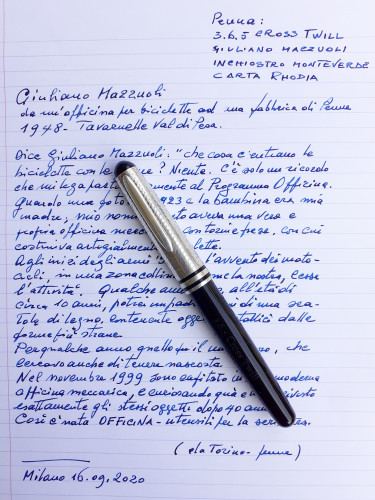 Penna:
3.6.5 CROSS TWILL
GIULIANO MAZZUOLI
INCHIOSTRO MONTEVERDE
CARTA RHODIA
Giuliano Mazzuoli
da un'officina per biciclette ad una fabbrica di Penne
1948 - Tavarnelle Val di Pesa.
Dice Giuliano Mazzuoli: "che cosa c'entrano le
biciclette con le ? Niente. C'è solo un ricordo
che mi lega part mente al Programma Officina.
Quando una foto 1923 e la bambina era mia
madre, mio non aveva una vera e
propria officina mecc con tornio e frese, con cui
costruiva artigianalmente lette.
Agli inizi degli anni l'avvento dei moto-
cicli, in una zona collin me la nostra, cessò
l'attività. Qualche anno all'età di
circa 10 anni, potrei di una sca-
tola di legno, contenente ogge tallici dalle
forme più strane
Per qualche anno quello fu il mio o, che
cercavo anche di tenere nascosto.
Nel novembre 1999 sono capitato in moderna
officina meccanica, e curiosando qua e visto
esattamente gli stessi oggetti dopo 40 ann
Così è nata OFFICINA - utensili per la scri
(da Torino-penne)
Milano 16.09.2020